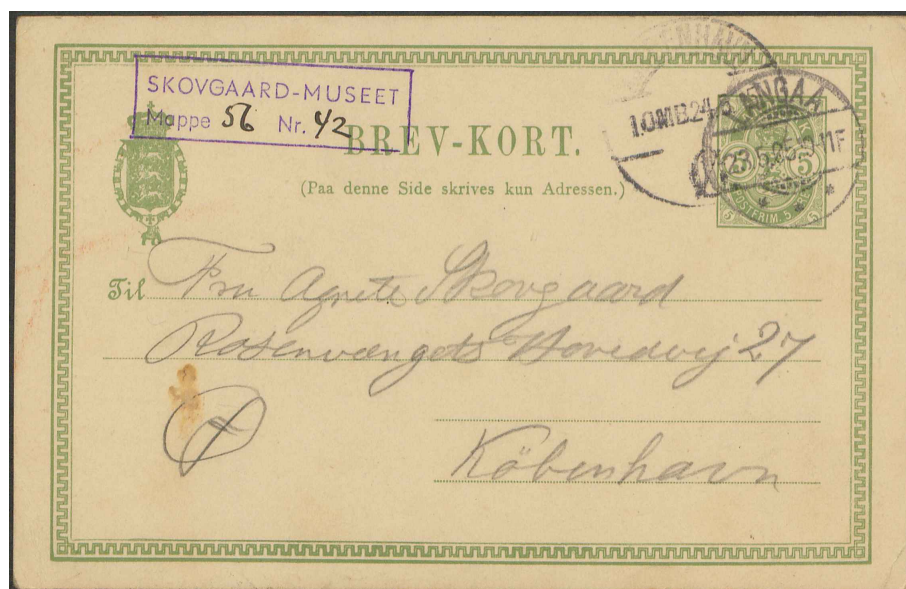 SKOVGAARD-MUSEET
Mappe 56 Nr. 42
BREV-KORT.
(Paa denne Side skrives kun Adressen.)
KØBENHAVN
1.OMB 24.5
LANGAA
23.5.05
5 5
POSTFRIM. 5
5 5
Til Fru Agnete Skovgaard
Rosenvængets Hovedvej 27
København